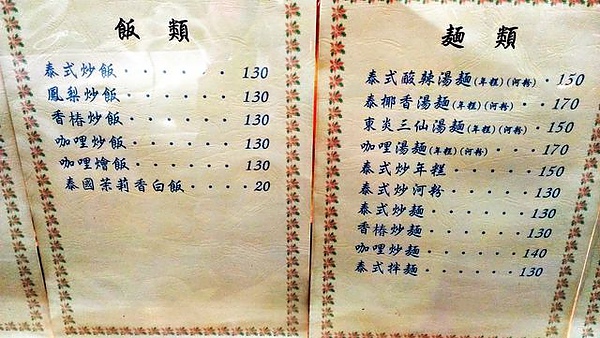 飯類
泰式炒飯・・・・・・130
鳳梨炒飯・・・・・・130
香椿炒飯・・・・・・130
咖哩炒飯・・・・・・130
咖哩燴飯・・・・・・130
泰國茉莉香白飯・・・・・20
麵類
泰式酸辣湯麵(年糕)(河粉)・・150
泰椰香湯麵(年糕)(河粉)・・170
東炎三仙湯麵(年糕)(河粉)・・150
咖哩湯麵(年糕)(河粉)・・・・170
泰式炒年糕・・・・・・150
泰式炒河粉・・・・・・130
泰式炒麵・・・・・・130
香椿炒麵・・・・・・130
咖哩炒麵・・・・・・140
泰式拌麵・・・・・・130